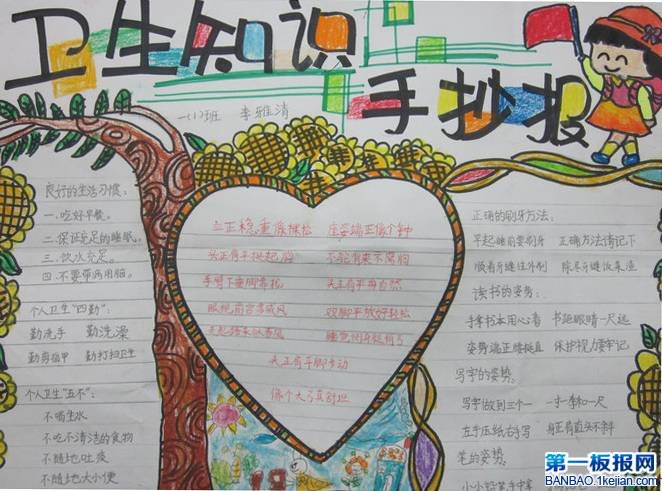 卫生知识
手抄报
一(1)班 李雅清
良好的生活习惯：
一.吃好早餐。
二.保证充足的睡眠。
三.饮水充足。
四.不要带病用脑。
个人卫生"四勤"：
勤洗手 勤洗澡
勤剪指甲 勤打扫卫生
个人卫生"五不"：
不喝生水
不吃不清洁的食物
不随地吐痰
不随地大小便
立正稳重像棵松 坐姿端正像个钟
头正肩平挺起胸
手臂下垂脚靠拢 头正肩平身自然
双脚平放好轻松
头正肩平脚步动
像个大弓真舒坦
正确的刷牙方法：
早起睡前要刷牙 正确方法请记下
顺着牙缝往外刷 除尽牙缝饭菜渣
读书的姿势：
手拿书本用心看 书距眼睛一尺远
姿势端正腰挺直 保护视力要牢记
写字的姿势。
写字做到三个一 一寸一拳和一尺
左手压纸右手写 身正肩直头不斜
笔的姿势：
小小铅笔手中拿
第一板报网
BANBAO.1kejian.com